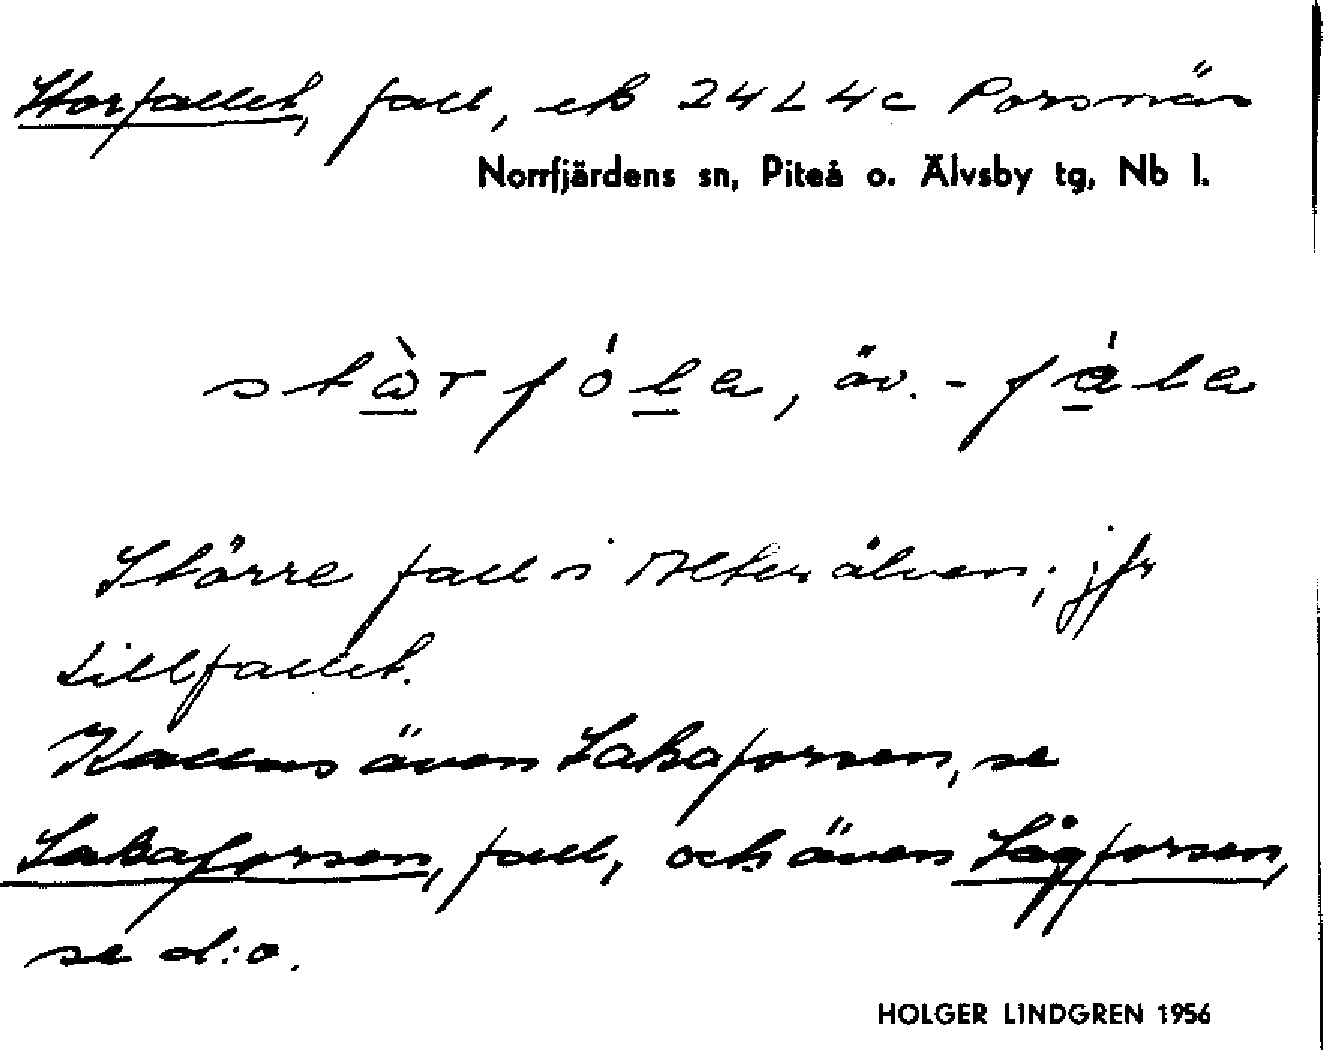 Storfallet, fall, ek 24 L 4 c Porsnäs
Norrfjärdens sn, Piteå o. Älvsby tg, Nb l.
stὼr fóla, äv. - fála
Större fall i Alterälven; jfr
Lillfallet.
Kallas även Lakaforsen, se
Lakaforsen, fall, och även Lågforsen,
se d:o.
HOLGER LINDGREN 1956